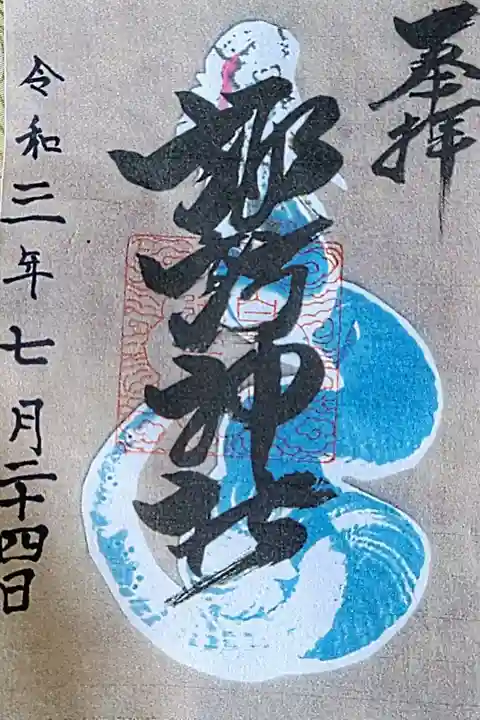 奉拝
神社
令和三年七月二十四日